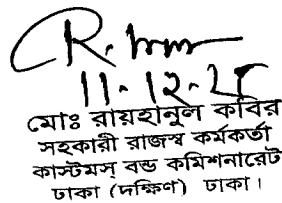 11.12.25
মোঃ রায়হানুল কবির
সহকারী রাজস্ব কর্মকর্তা
কাস্টমস্ বন্ড কমিশনারেট
ঢাকা (দক্ষিণ) ঢাকা।